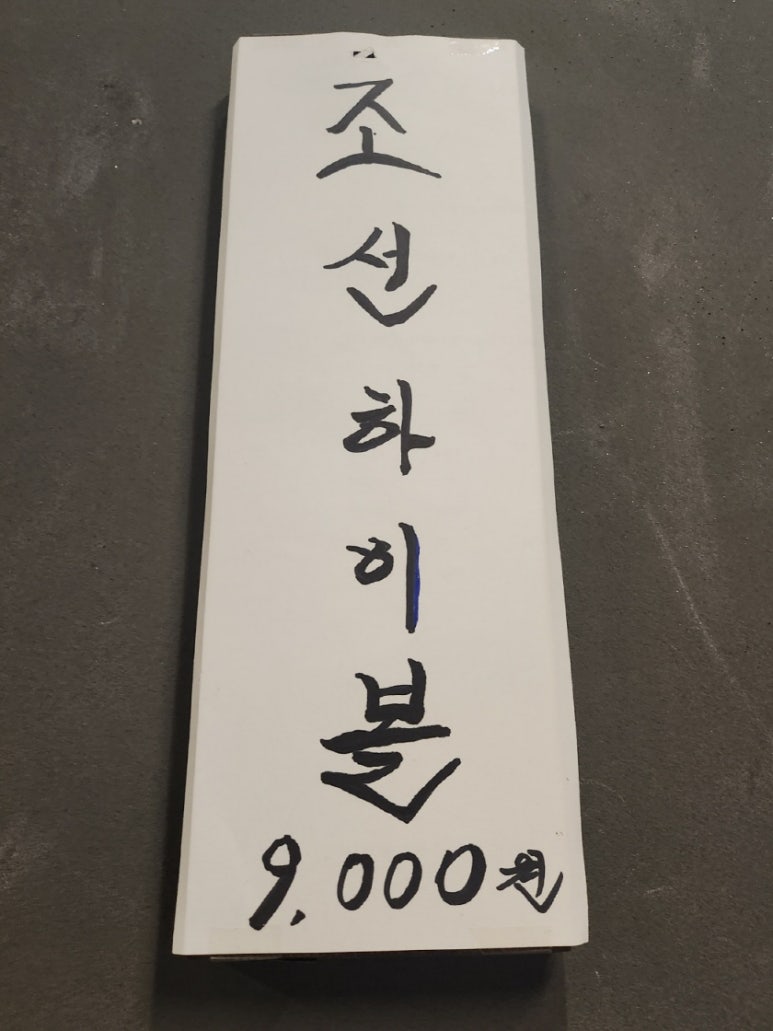 조선하이볼
9,000원